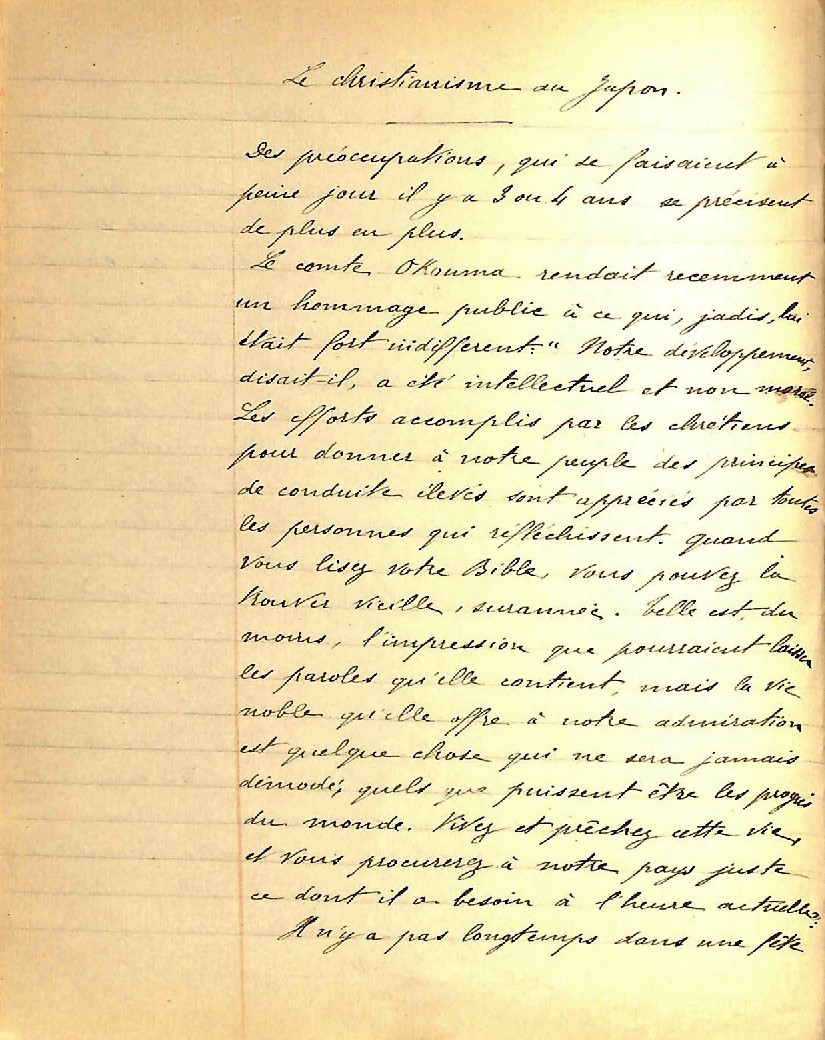 Le christianisme au Japon.
Des préoccupations, qui se faisaient à
peine jour il y a 3 ou 4 ans se précisent
de plus en plus.
Le comte Okouma rendait recemment
un hommage public à ce qui, jadis, lui
était fort indifferent: " Notre développement,
disait-il, a été intellectuel et non moral.
Les efforts accomplis par les chrétiens
pour donner à notre peuple des principes
de conduite élevés sont appréciés par toutes
les personnes qui refléchissent. Quand
vous lisez votre Bible, vous pouvez la
trouver vieille, surannée. Telle est, du
moins, l'impression que pourraient laisser
les paroles qu'elle contient, mais la vie
noble qu'elle offre à notre admiration
est quelque chose qui ne sera jamais
démodé, quels que puissent être les progrès
du monde. Vivez et prêchez cette vie,
et vous procurerez à notre pays juste
ce dont il a besoin à l'heure actuelle".
Il n'y a pas longtemps dans une fête